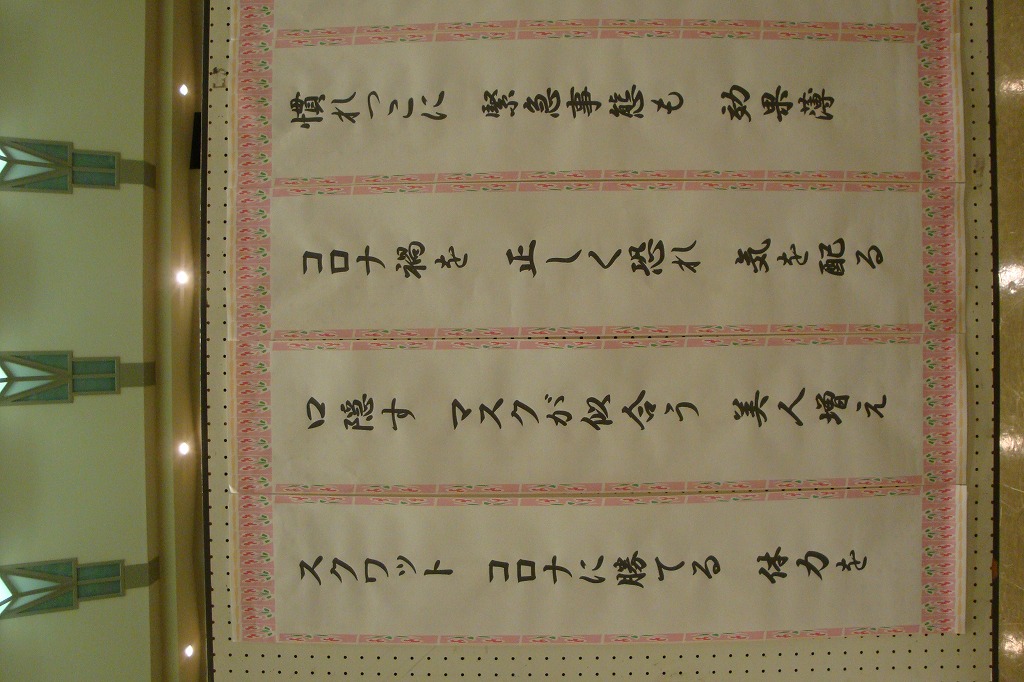 慣れっこに　緊急事態も　効果薄
コロナ禍を　正しく恐れ　気を配る
口隠す　マスクが似合う　美人増え
スクワット　コロナに勝てる　体力を